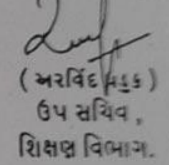 (અરવિંદ મડુક)
ઉપ સચિવ,
શિક્ષણ વિભાગ.